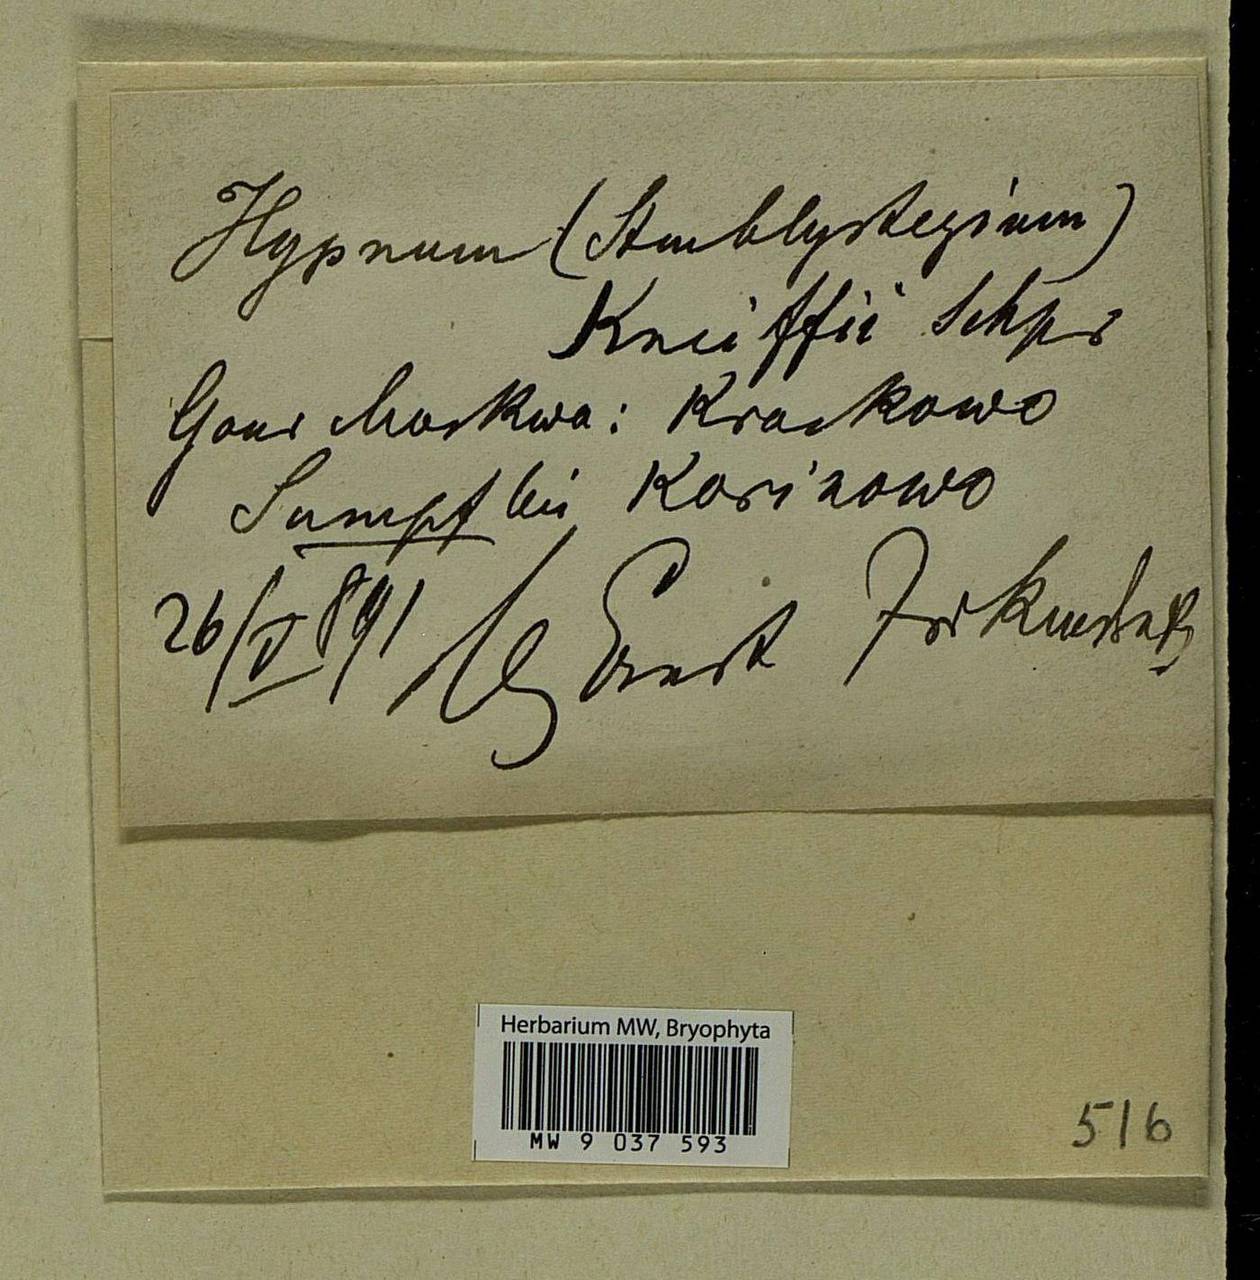 Hypnum (Amblystegium)
Kneiffii Schpr
Gour Moskwa: Kraskowo
Sumpf bei Korinowo
26/V 891 Ernst
Herbarium MW, Bryophyta
MW 9 037 593
516